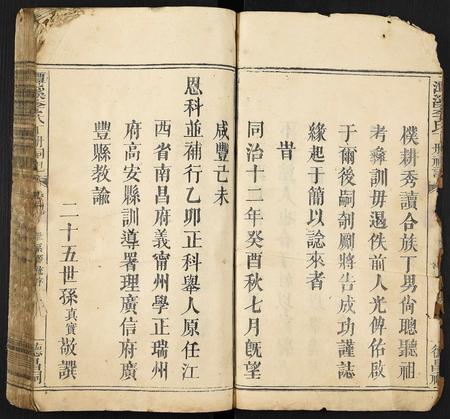 樸耕秀讀合族丁男尙聰聽祖
考彝訓毋遏佚前人光俾佑啟
于爾後嗣剞劂將告成功謹誌
緣起于簡以諗來者
旹
同治十二年癸酉秋七月旣望
咸豐己未
恩科並補行乙卯正科舉人原任江
西省南昌府義甯州學正瑞州
府高安縣訓導署理廣信府廣
豐縣教諭
二十五世孫真實敬譔